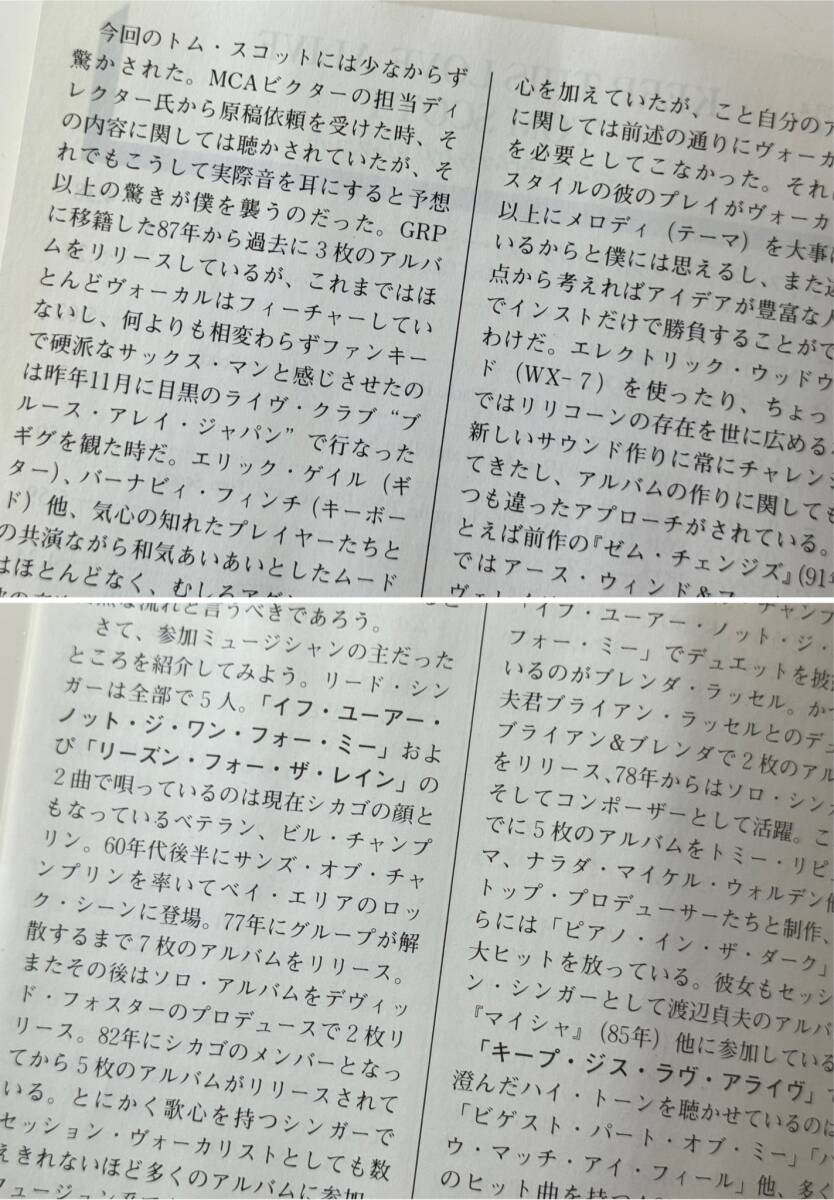 今回のトム・スコットには少なからず
驚かされた。MCAビクターの担当ディ
レクター氏から原稿依頼を受けた時、そ
の内容に関しては聴かされていたが、そ
れでもこうして実際音を耳にすると予想
以上の驚きが僕を襲うのだった。GRP
に移籍した87年から過去に3枚のアルバ
ムをリリースしているが、これまではほ
とんどヴォーカルはフィーチャーしてい
ないし、何よりも相変わらずファンキー
で硬派なサックス・マンと感じさせたの
は昨年11月に目黒のライヴ・クラブ“ブ
ルース・アレイ・ジャパン”で行なった
ギグを観た時だ。エリック・ゲイル（ギ
ター）、バーナビィ・フィンチ（キーボー
ド）他、気心の知れたプレイヤーたちと
の共演ながら和気あいあいとしたムード
はほとんどなく、むしろアグ
心を加えていたが、こと自分のア
に関しては前述の通りにヴォーカ
を必要としてこなかった。それに
スタイルの彼のプレイがヴォーカ
以上にメロディ（テーマ）を大事に
いるからと僕には思えるし、また
点から考えればアイデアが豊富な人
でインストだけで勝負することがで
わけだ。エレクトリック・ウッドウ
ド（WX-7）を使ったり、ちょっ
ではリリコーンの存在を世に広める
新しいサウンド作りに常にチャレンジ
てきたし、アルバムの作りに関しても
つも違ったアプローチがされている。
とえば前作の『ゼム・チェンジズ』(91年
ではアース・ウィンド&
流れと言うべきであろう。
さて、参加ミュージシャンの主だった
ところを紹介してみよう。リード・シン
ガーは全部で5人。「イフ・ユーアー・
ノット・ジ・ワン・フォー・ミー」およ
び「リーズン・フォー・ザ・レイン」の
2曲で唄っているのは現在シカゴの顔と
もなっているベテラン、ビル・チャンプ
リン。60年代後半にサンズ・オブ・チャ
ンプリンを率いてベイ・エリアのロッ
ク・シーンに登場。77年にグループが解
散するまで7枚のアルバムをリリース。
またその後はソロ・アルバムをデヴィッ
ド・フォスターのプロデュースで2枚リ
リース。82年にシカゴのメンバーとなっ
てから5枚のアルバムがリリースされて
いる。とにかく歌心を持つシンガーで
セッション・ヴォーカリストとしても数
えきれないほど多くのアルバムに参加
「イフ・ユーアー・ノット・ジ・
フォー・ミー」でデュエットを披
いるのがブレンダ・ラッセル。かつ
夫君ブライアン・ラッセルとのデュ
ブライアン&ブレンダで2枚のアル
をリリース、78年からはソロ・シンガ
そしてコンポーザーとして活躍。こ
でに5枚のアルバムをトミー・リピ
マ、ナラダ・マイケル・ウォルデン他
トップ・プロデューサーたちと制作、
らには「ピアノ・イン・ザ・ダーク」
大ヒットを放っている。彼女もセッシ
ン・シンガーとして渡辺貞夫のアルバ
『マイシャ』(85年) 他に参加している
「キープ・ジス・ラヴ・アライヴ」で
澄んだハイ・トーンを聴かせているのは
「ビゲスト・パート・オブ・ミー」「ハ
ウ・マッチ・アイ・フィール」他、多く
のヒット曲を持つ